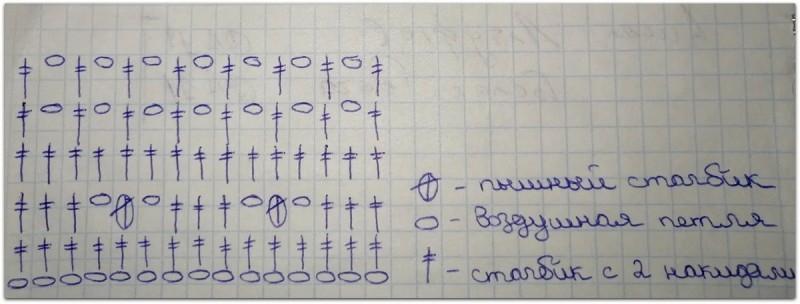 - пышный столбик
- воздушная петля
- столбик с 2 накидами